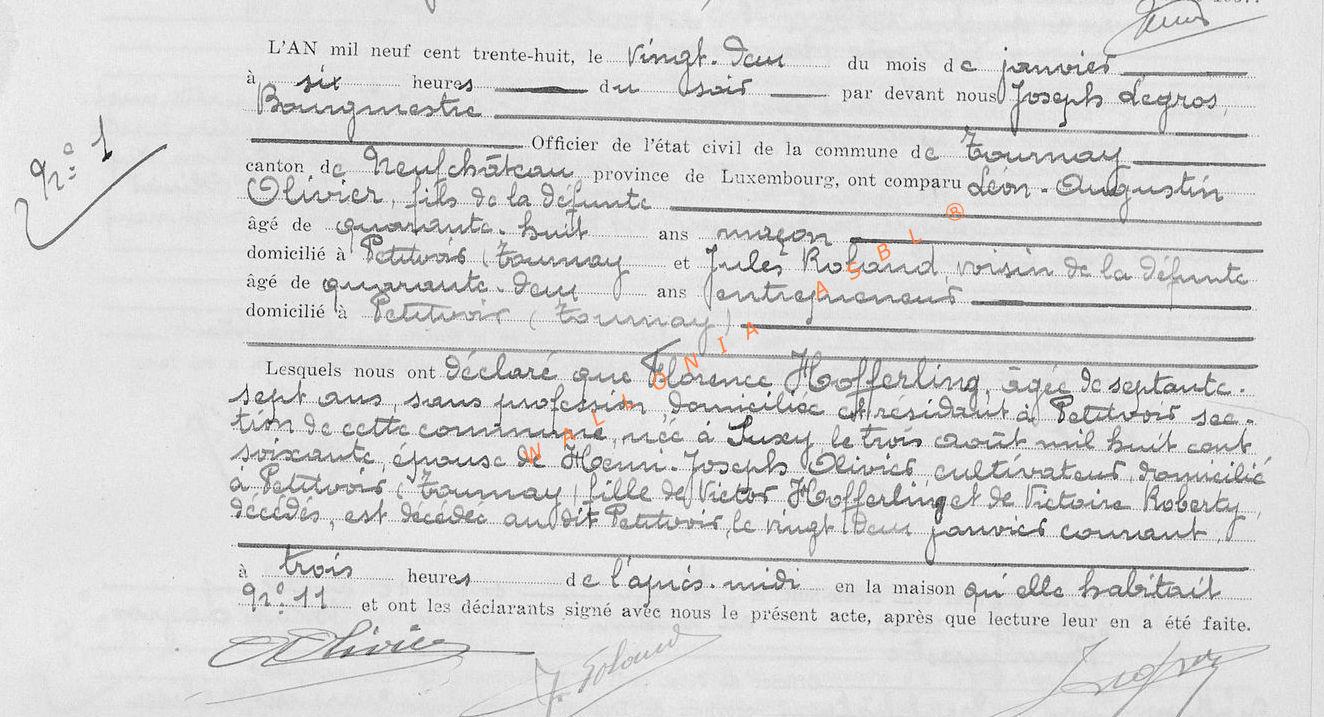 L'AN mil neuf cent trente-huit, le vingt-deux du mois de janvier
à six heures du soir par devant nous Joseph Legros,
Bourgmestre
Officier de l'état civil de la commune de Tournay
N° 1
canton de Neufchâteau province de Luxembourg, ont comparu Léon-Augustin
Olivier, fils de la défunte
âgé de quarante-huit ans maçon
domicilié à Petitvoir (Tournay et Jules Roland, voisin de la défunte
âgé de quarante-deux ans entrepreneur
domicilié à Petitvoir (Tournay)
Lesquels nous ont déclaré que Florence Hofferling, âgée de septante-
sept ans, sans profession, domiciliée et résidant à Petitvoir sec-
tion de cette commune, née à Suxy le trois août mil huit cent
soixante, épouse de Henri-Joseph Olivier, cultivateur, domicilié
à Petitvoir (Tournay) fille de Victor Hofferling et de Victoire Roberty,
décédés, est décédée au dit Petitvoir, le vingt deux janvier courant,
à trois heures de l'après-midi en la maison qu'elle habitait
N° 11 et ont les déclarants signé avec nous le présent acte, après que lecture leur en a été faite.
Olivier J. Roland
WALLONIA ASBL ®